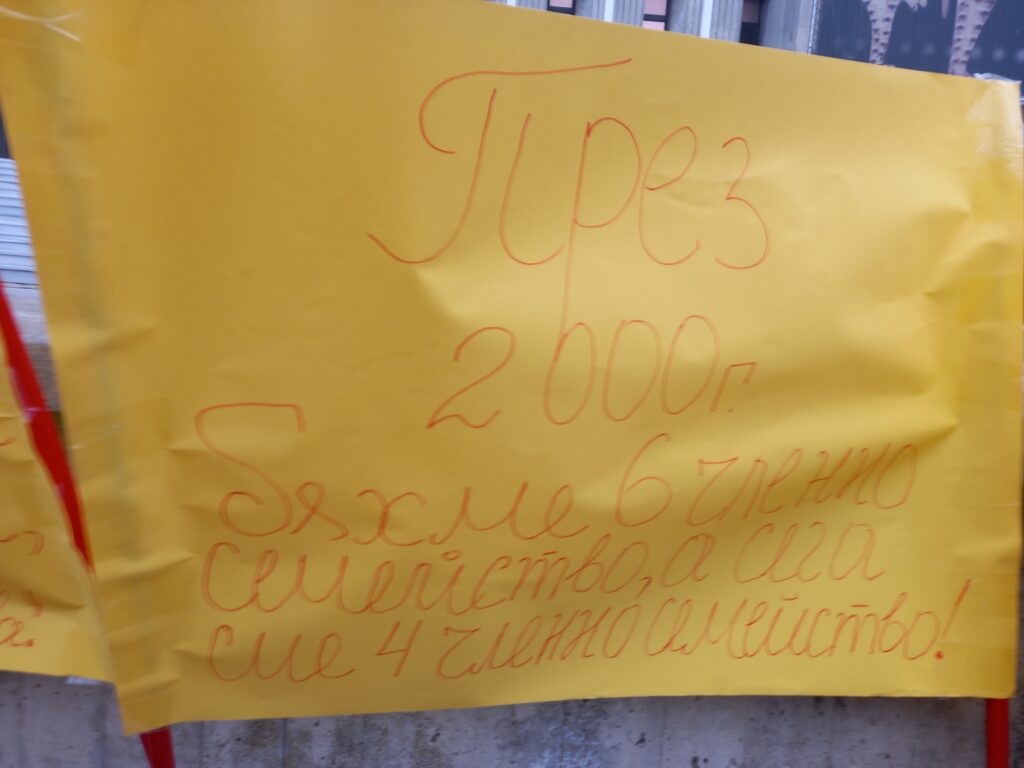 През
2000г.
Бяхме 6 членно
семейство, а сега
сме 4 членно семейство!